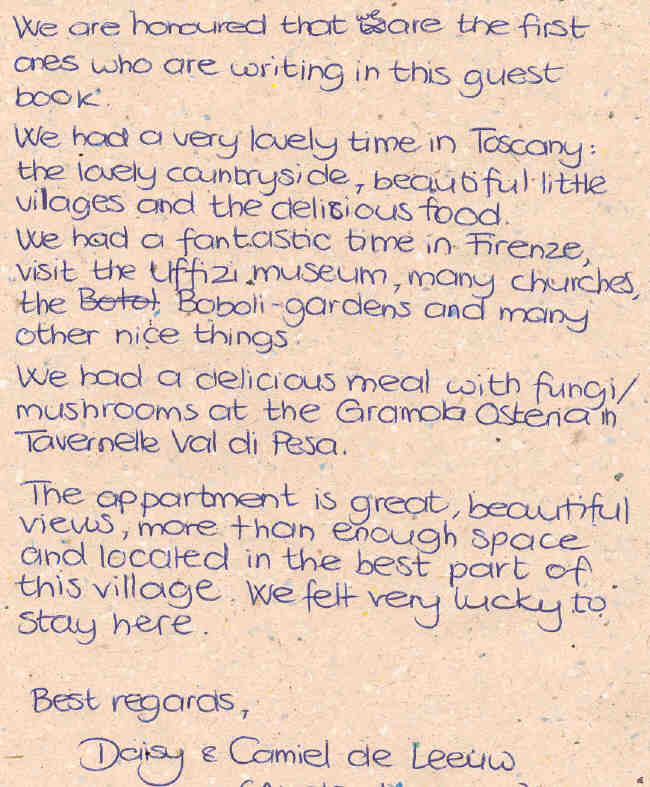 We are honoured that we are the first
ones who are writing in this guest
book.
We had a very lovely time in Toscany:
the lovely countryside, beautiful little
vilages and the delisious food.
We had a fantastic time in Firenze,
visit the Uffizi museum, many churches,
the Botol Boboli-gardens and many
other nice things.
We had a delicious meal with fungi/
mushrooms at the Gramola Osteria in
Tavernelle Val di Pesa.
The appartment is great, beautiful
views, more than enough space
and located in the best part of
this village. We felt very lucky to
stay here.
Best regards,
Daisy & Camiel de Leeuw